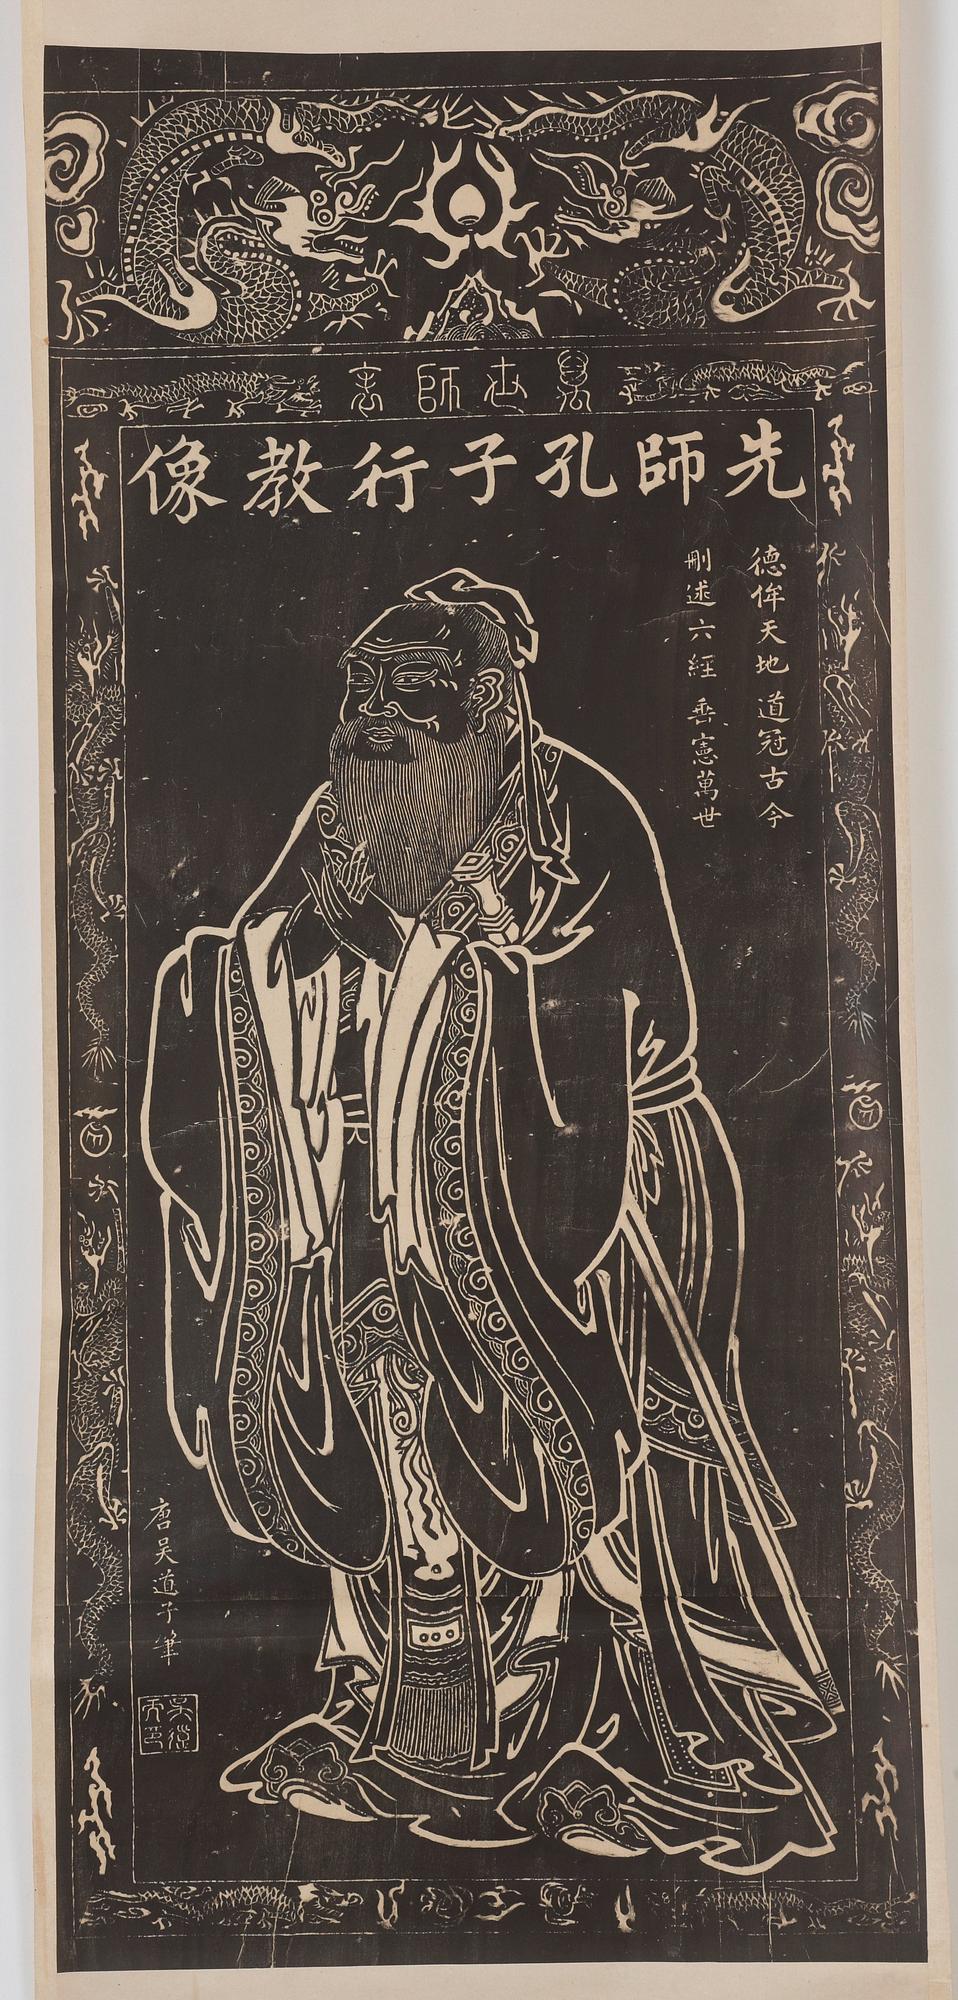 萬世師表
先師孔子行教像
德侔天地道冠古今
刪述六經垂憲萬世
唐吳道子筆